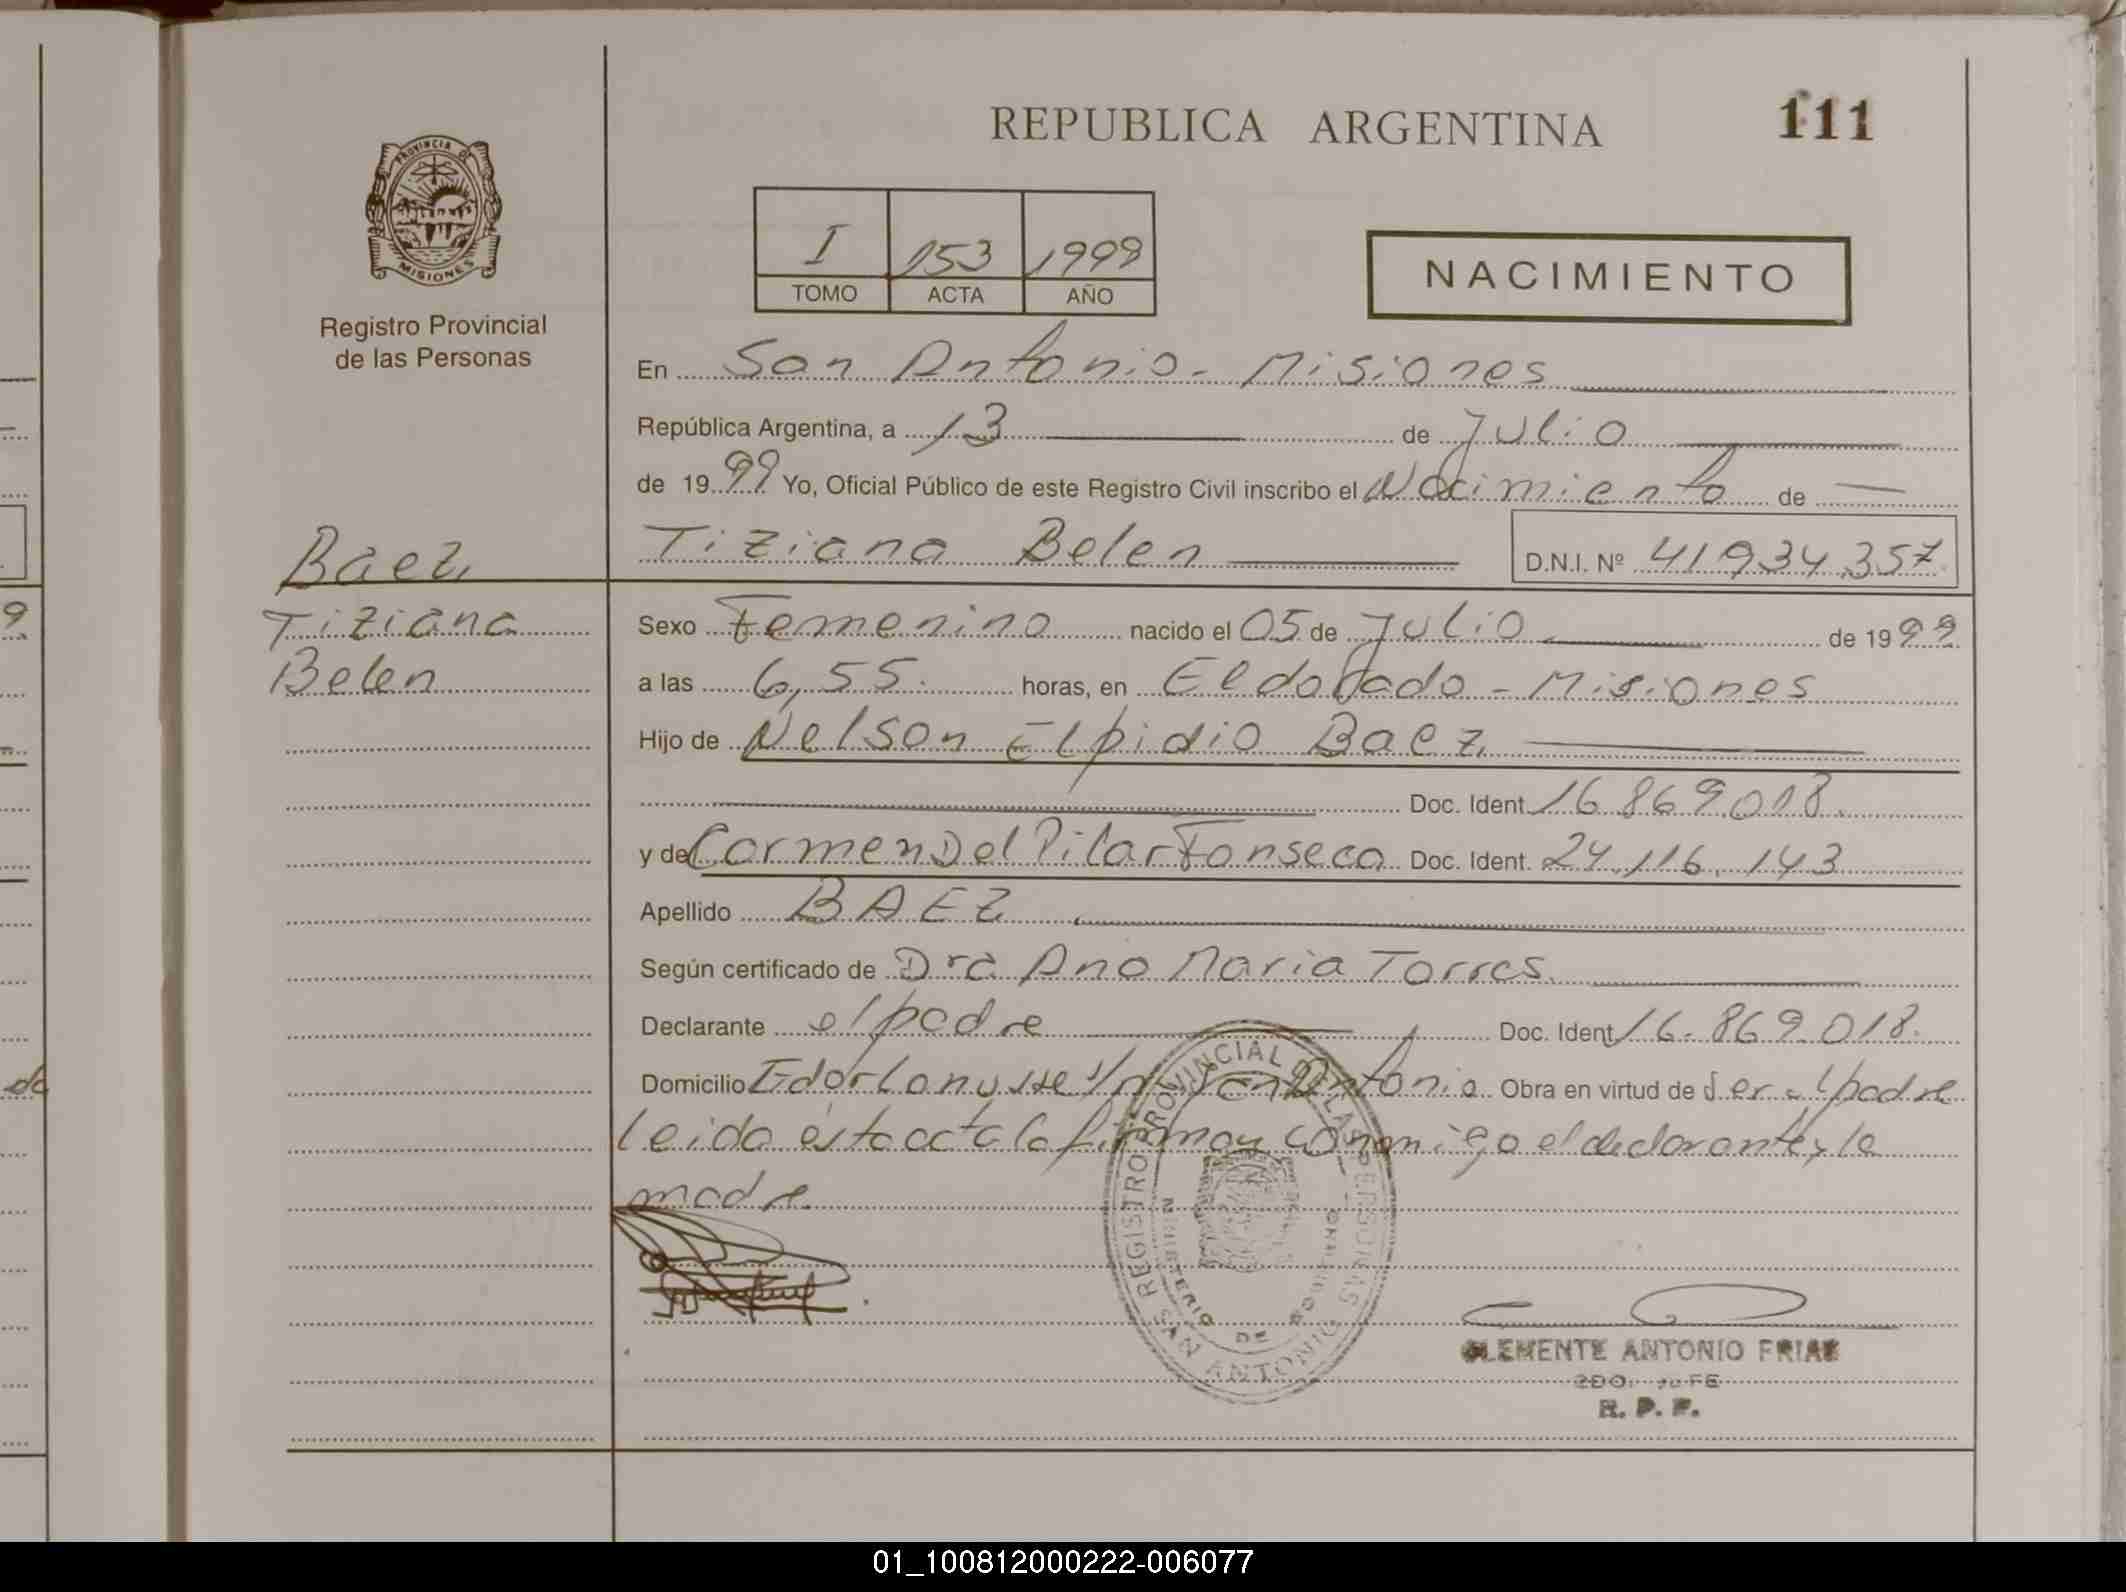 REPUBLICA ARGENTINA
111
PROVINCIA DE
MISIONES
Registro Provincial
de las Personas
I 153 1999
TOMO ACTA AÑO
NACIMIENTO
En San Antonio - Misiones
República Argentina, a 13 de Julio
de 1999 Yo, Oficial Público de este Registro Civil inscribo el Nacimiento de
Baez
Tiziana Belen D.N.I. Nº 41934.357
Tiziana
Belen
Sexo Femenino nacido el 05 de Julio de 1999
a las 6,55. horas, en Eldorado - Misiones
Hijo de Nelson Elpidio Baez
Doc. Ident 16869018.
y de Carmen Del Pilar Fonseca Doc. Ident. 24.116.143
Apellido BAEZ
Según certificado de Dra Ana Maria Torres.
Declarante el padre Doc. Ident 16.869.018.
Domicilio Edor Lanusse S/n San Antonio Obra en virtud de Ser el padre
leida esta acta la firman conmigo el declarante y la
madre
REGISTRO PROVINCIAL DE LAS PERSONAS
MINISTERIO DE GOBIERNO
SAN ANTONIO
CLEMENTE ANTONIO FRIAS
2DO. JEFE
R. P. P.
9
da
01_100812000222-006077